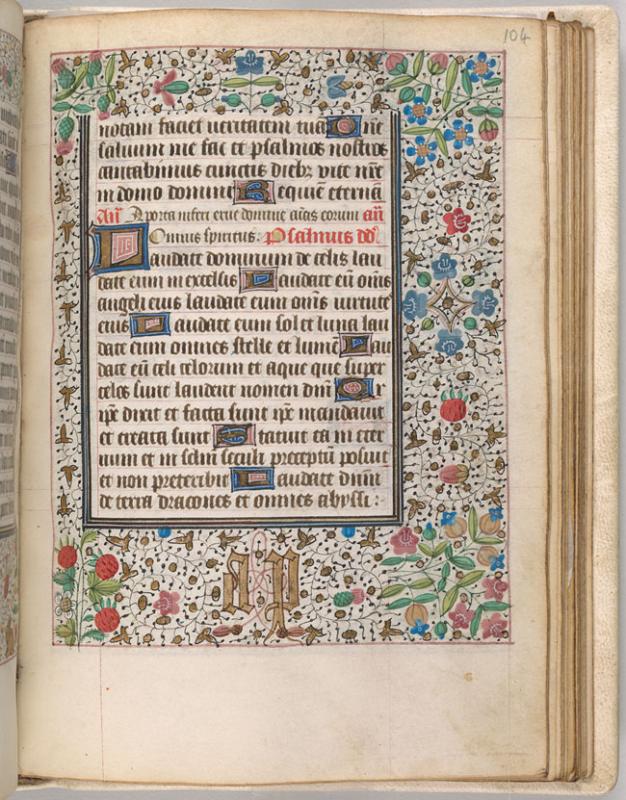 104
notam faciet ueritatem tua Dñe
saluum me fac et psalmos nostros
cantabimus cunctis dieb; vite nr̃e
in domo domini Requiē eternā
Añ A porta inferi erue domine aı̄as eorum añ
Omnis spiritus. Psalmus dd̄.
Laudate dominum de celis lau
date eum in excelsis Laudate eū om̄s
angeli eius laudate eum om̄s uirtute
eius Laudate eum sol et luna lau
date eum omnes stelle et lumē Lau
date eū celi celorum et aque que super
celos sunt laudent nomen dn̄i Qr
ip̄e dixit et facta sunt ip̄e mandauit
et creata sunt Statuit ea in eter
num et in sclm̄ seculi preceptū posuit
et non preteribit Laudate dn̄m
de terra dracones et omnes abyssi: